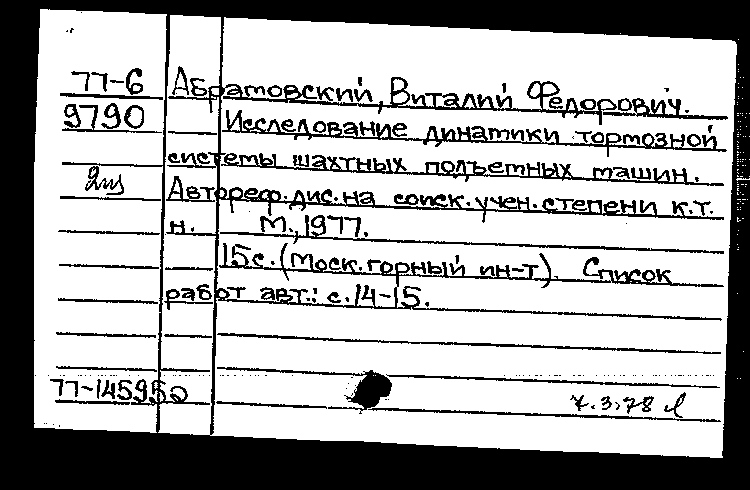 77-6 Абрамовский, Виталий Федорович.
9790 Исследование динамики тормозной
системы шахтных подъемных машин.
Автореф.дис.на соиск.учен.степени к.т.
н. М., 1977.
15с. (Моск.горный ин-т). Список
работ авт.: с.14-15.
77-145950
7.3.78